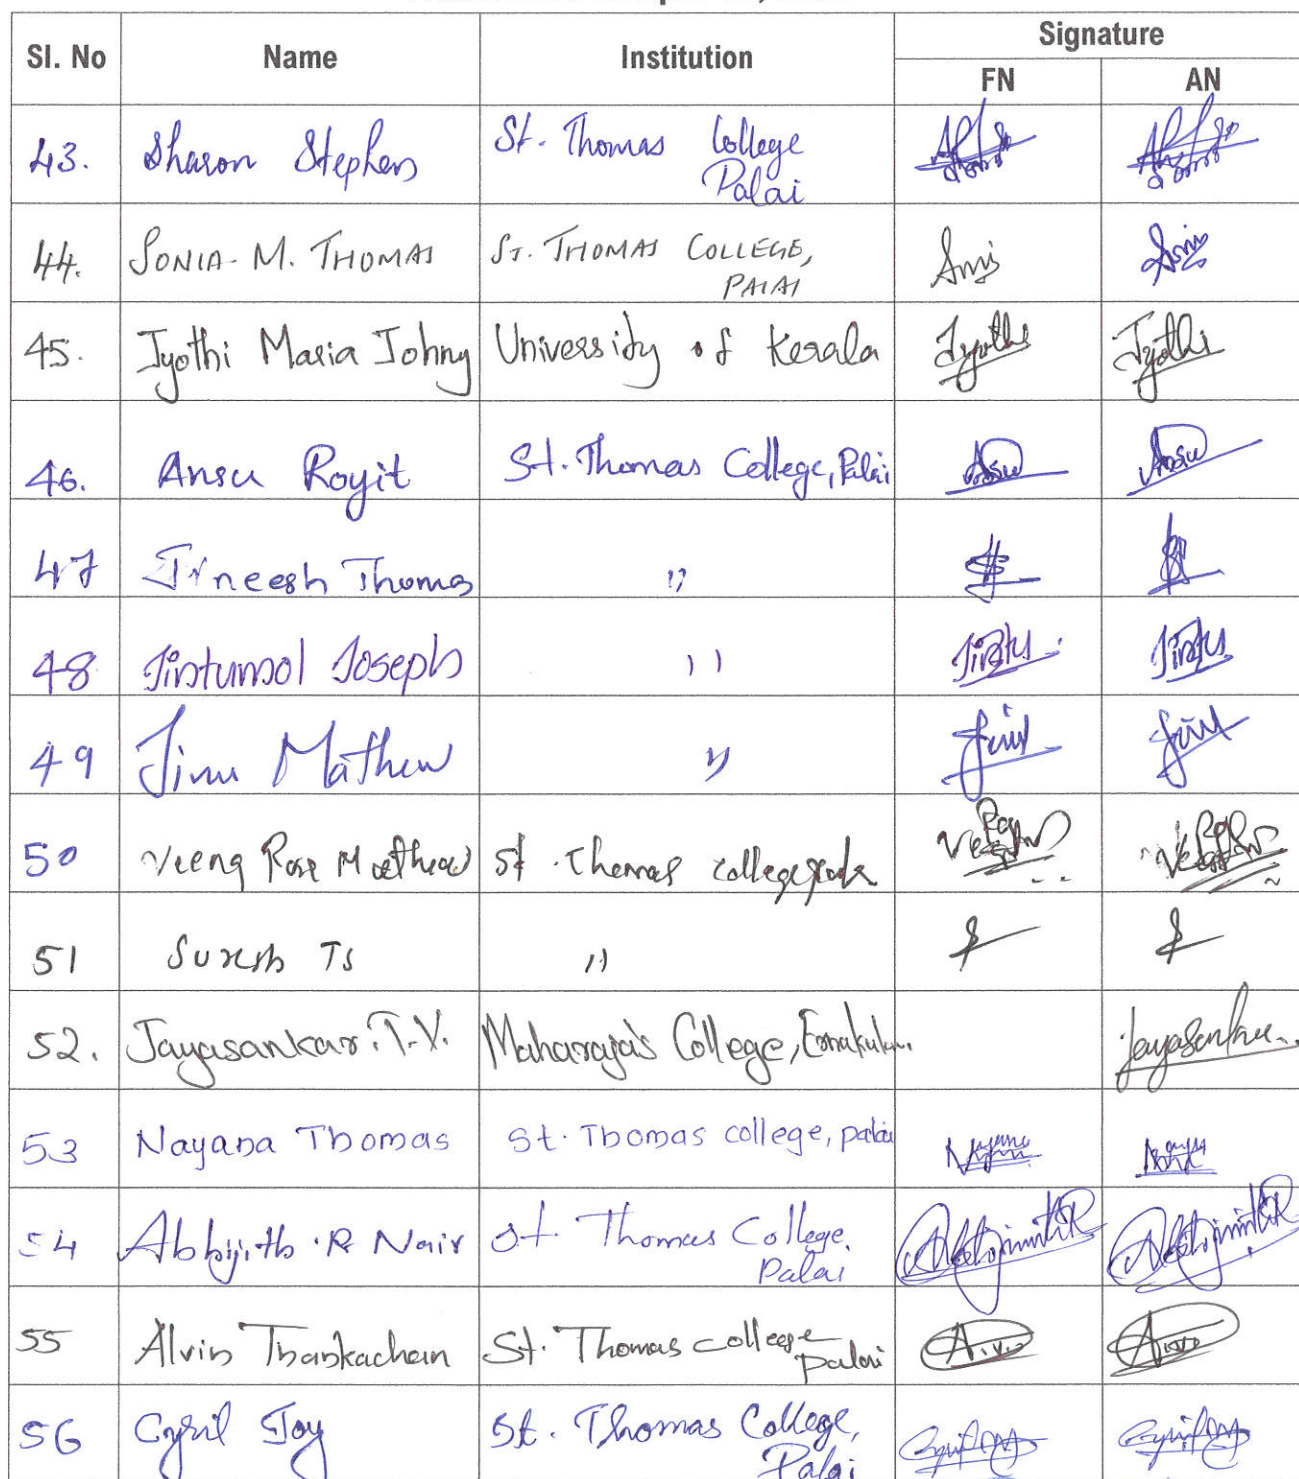 Sl. No Name Institution Signature
FN AN
43. Sharon Stephen St. Thomas College
Palai
44. SONIA M. THOMAS ST. THOMAS COLLEGE,
PALAI
45. Jyothi Maria Johny University of Kerala Jyothi Jyothi
46. Ansu Royit St. Thomas College, Palai Ansu Ansu
47 Jineesh Thomas ,,
48 Jintumol Joseph ,, Jintu Jintu
49 Jinu Mathew ,,
50 Veena Rose Mathew St. Thomas college
51 Suresh TS ,,
52. Jayasankar. T.V. Maharaja's College, Ernakulam. Jayasankar
53 Nayana Thomas St. Thomas college, palai Nayana
54 Abhijith R Nair St. Thomas College,
Palai
55 Alvin Thankachan St. Thomas college
palai
56 Cyril Joy St. Thomas College,
Palai